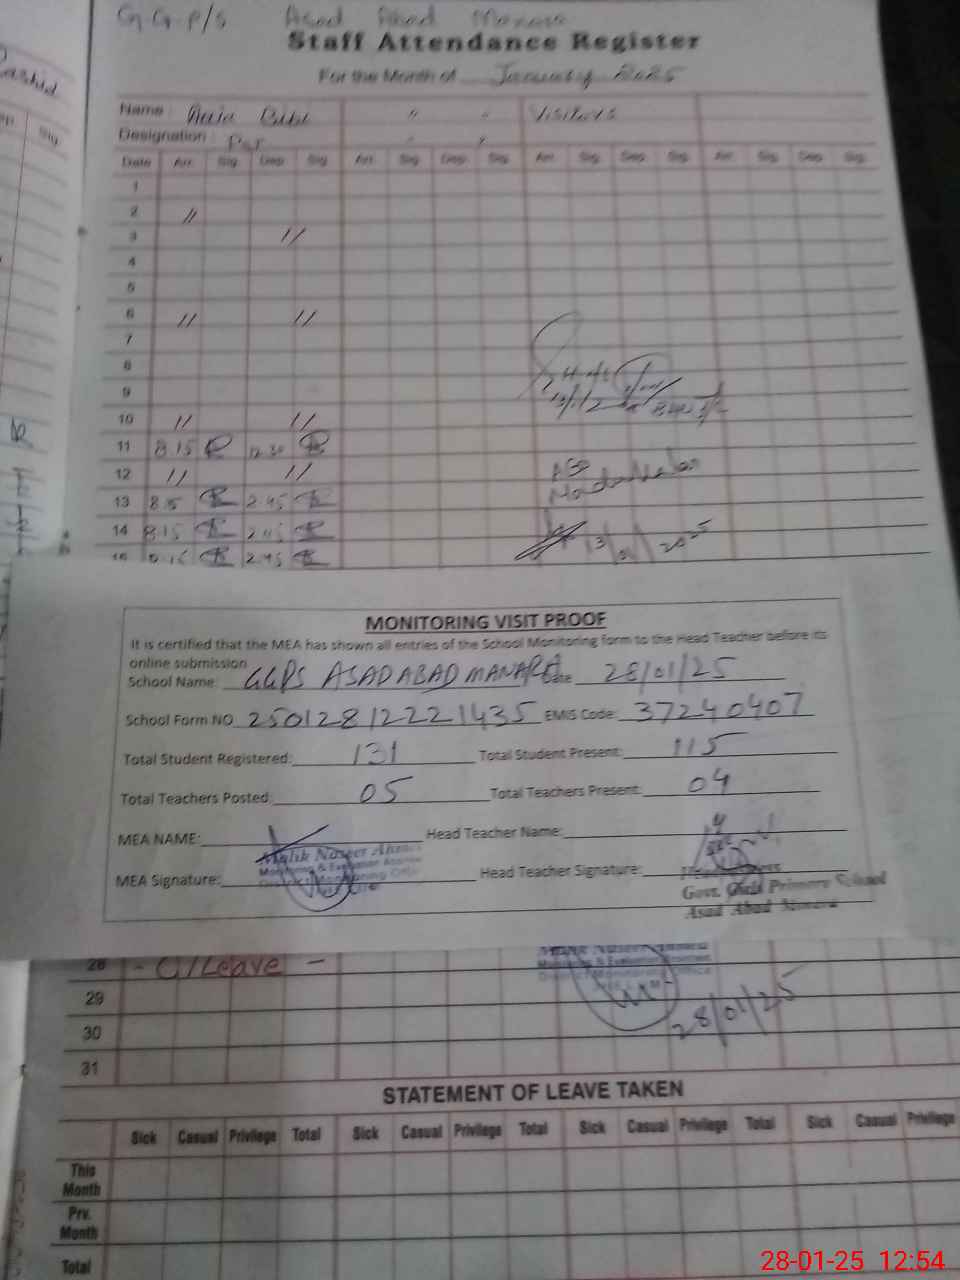 G.G.P/S Asad Abad
Staff Attendance Register
For the Month of January 2025
Name : Bibi " " Visitors
Designation :
Date Arr. Sig. Dep. Sig. Arr. Sig. Dep. Sig. Arr. Sig. Dep. Sig. Arr. Sig. Dep. Sig.
1
2 //
3 //
4
5
6 // //
7
8
9
10 // //
11 8.15 12.30
12 // //
13 2.45
14 8.15
13/01/2025
MONITORING VISIT PROOF
It is certified that the MEA has shown all entries of the School Monitoring form to the Head Teacher before its
online submission
School Name: GGPS ASADABAD MANARA Date 28/01/25
School Form NO 25012812221435 EMIS Code: 37240407
Total Student Registered: 131 Total Student Present: 115
Total Teachers Posted: 05 Total Teachers Present: 04
MEA NAME: Head Teacher Name:
Malik Naseer Ahmed
Monitoring & Evaluation
District Monitoring Office
MEA Signature: Head Teacher Signature:
Govt. Girls Primary School
Asad Abad Monara
28 - C/Leave -
Monitoring & Evaluation
District Monitoring Office
29
28/01/25
30
31
STATEMENT OF LEAVE TAKEN
Sick Casual Privilege Total Sick Casual Privilege Total Sick Casual Privilege Total Sick Casual Privilege
This
Month
Prv.
Month
Total
28-01-25 12:54